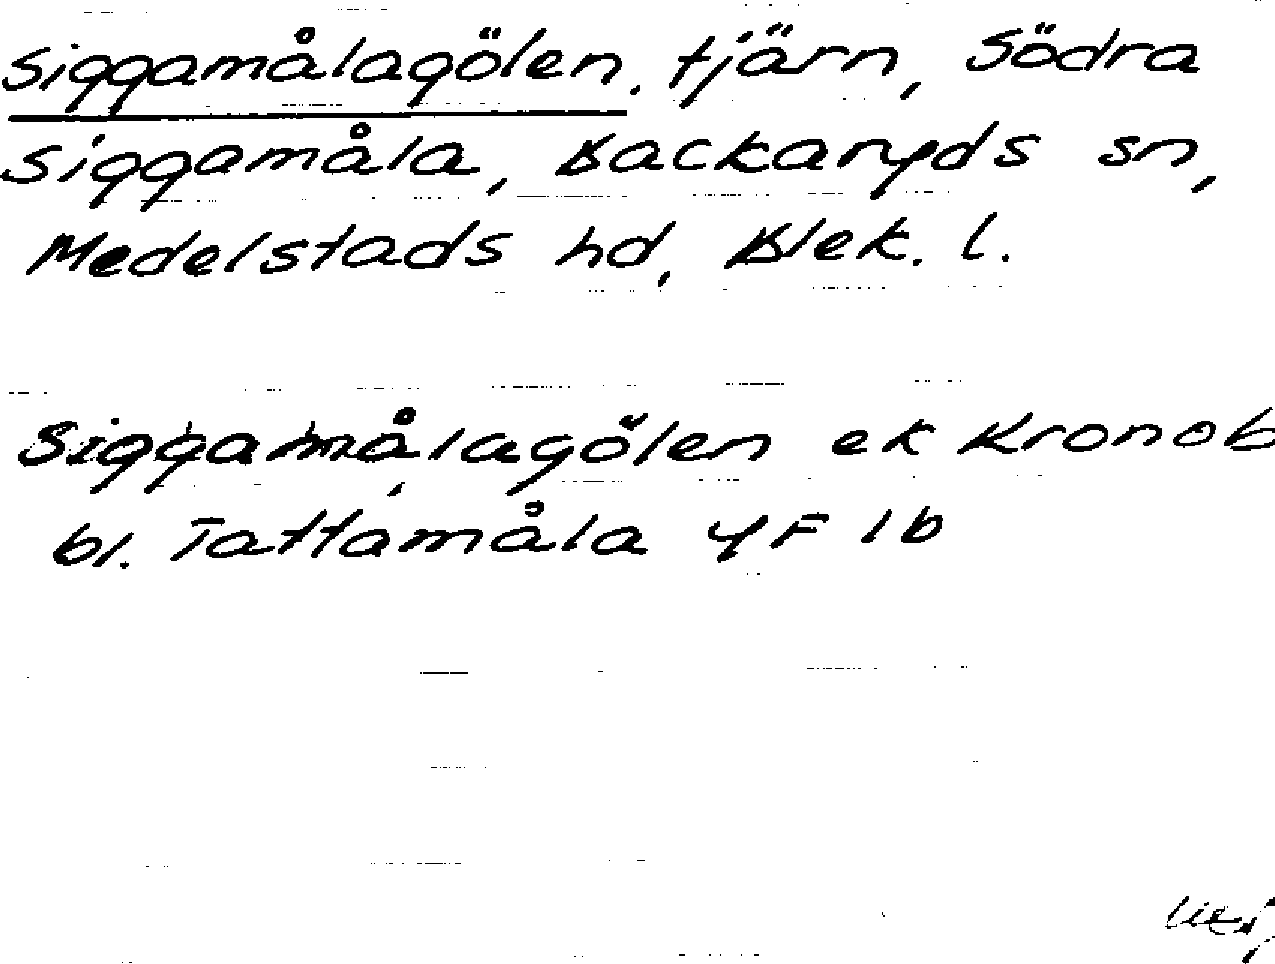 Siggamålagölen. tjärn, Södra
Siggamåla, Backaryds sn,
Medelstads hd, Blek. l.
Siggamålagölen ek Kronob
bl. Tattamåla 4F 1b